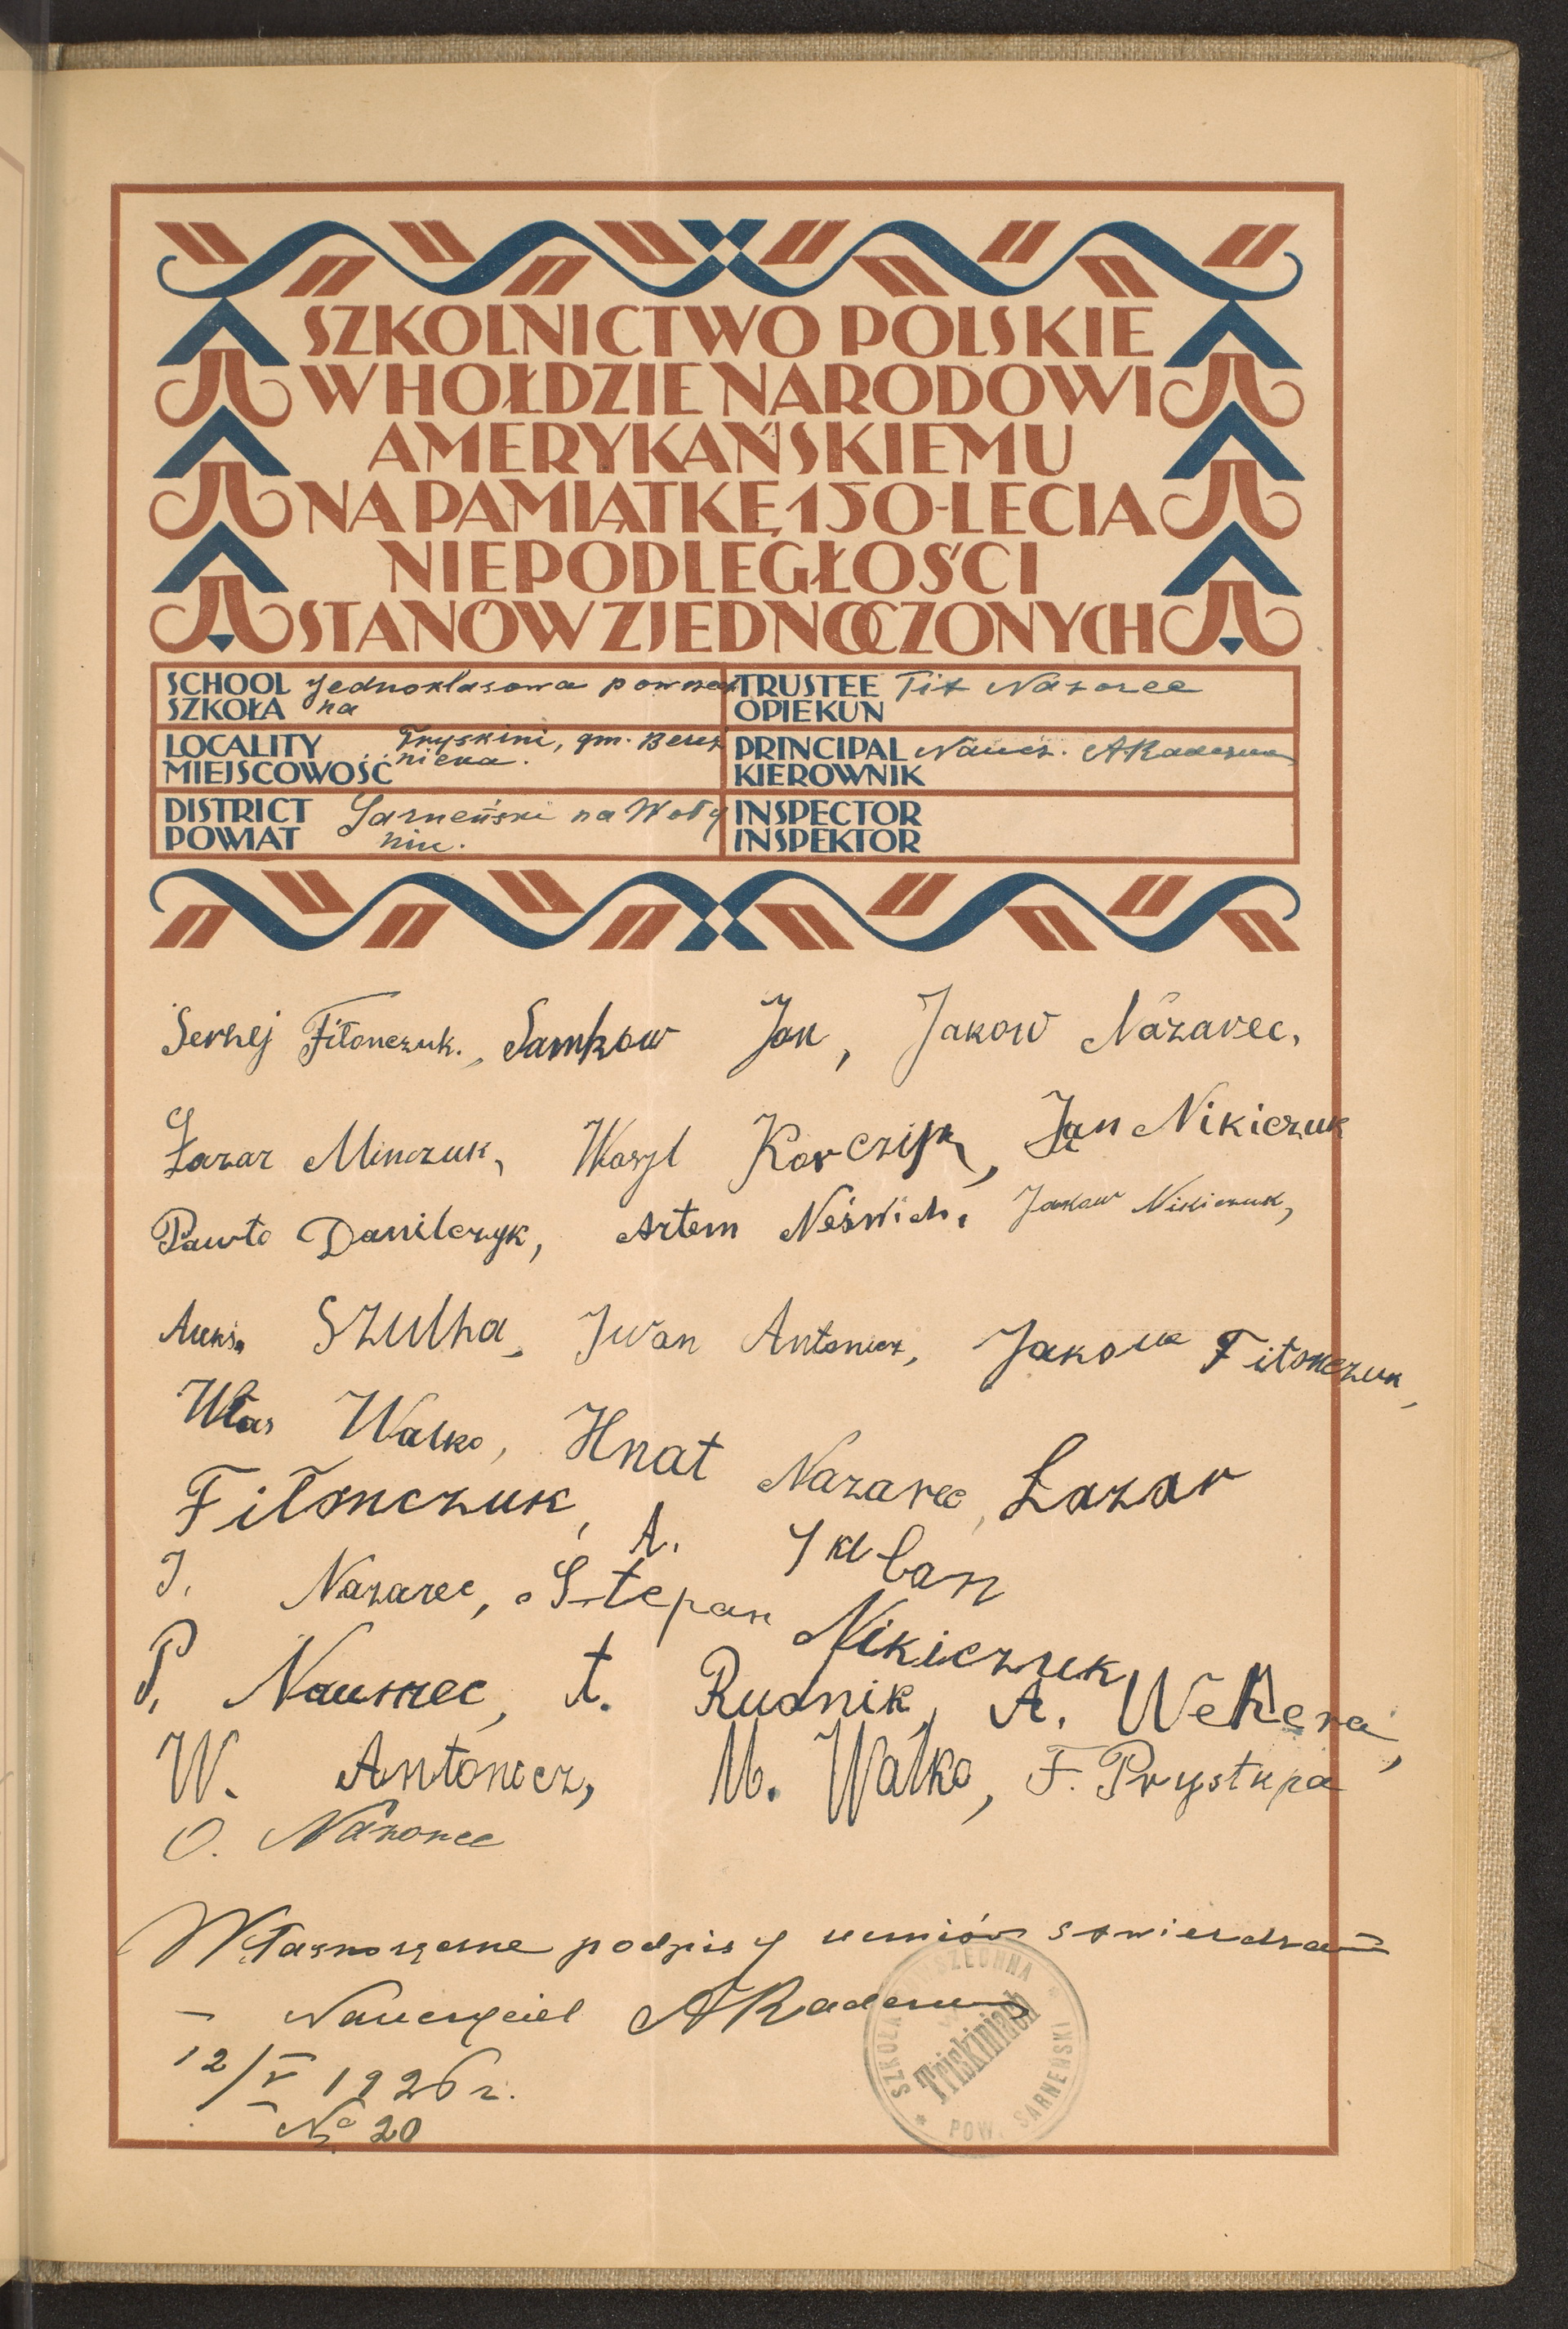 SZKOLNICTWO POLSKIE
W HOŁDZIE NARODOWI
AMERYKAŃSKIEMU
NA PAMIĄTKĘ 150-LECIA
NIEPODLEGŁOŚCI
STANÓW ZJEDNOCZONYCH
SCHOOL Jednoklasowa powszech
SZKOŁA na
TRUSTEE Tit Nazarec
OPIEKUN
LOCALITY Tryskini, gm. Berez
MIEJSCOWOŚĆ nicka.
PRINCIPAL Naucz.
KIEROWNIK
DISTRICT Sarneński na Woły
POWIAT niu.
INSPECTOR
INSPEKTOR
Serhej Fiłonczuk., Samkow Jan, Jakow Nazarec.
Łazar Minczuk, Wasyl Korczyk, Jan Nikiczuk
Pawło Danilczyk, Artem Neświch, Jakow Nikiczuk,
Szulha, Iwan Antonicz, Jakow Fiłonczuk,
Włas Wałko, Hnat Nazarec, Łazar
Fiłonczuk, A. Jkłban
I. Nazarec, Stepan Nikiczuk
P. Naumec, A. Rudnik, A. Wehera,
W. Antonicz, M. Wałko, F. Prystupa
O. Nazarec
Własnoręczne podpisy uczniów stwierdzam
— Nauczyciel
12/V 1926 r.
№ 20
SZKOŁA POWSZECHNA
w Triskiniach
POW. SARNEŃSKI